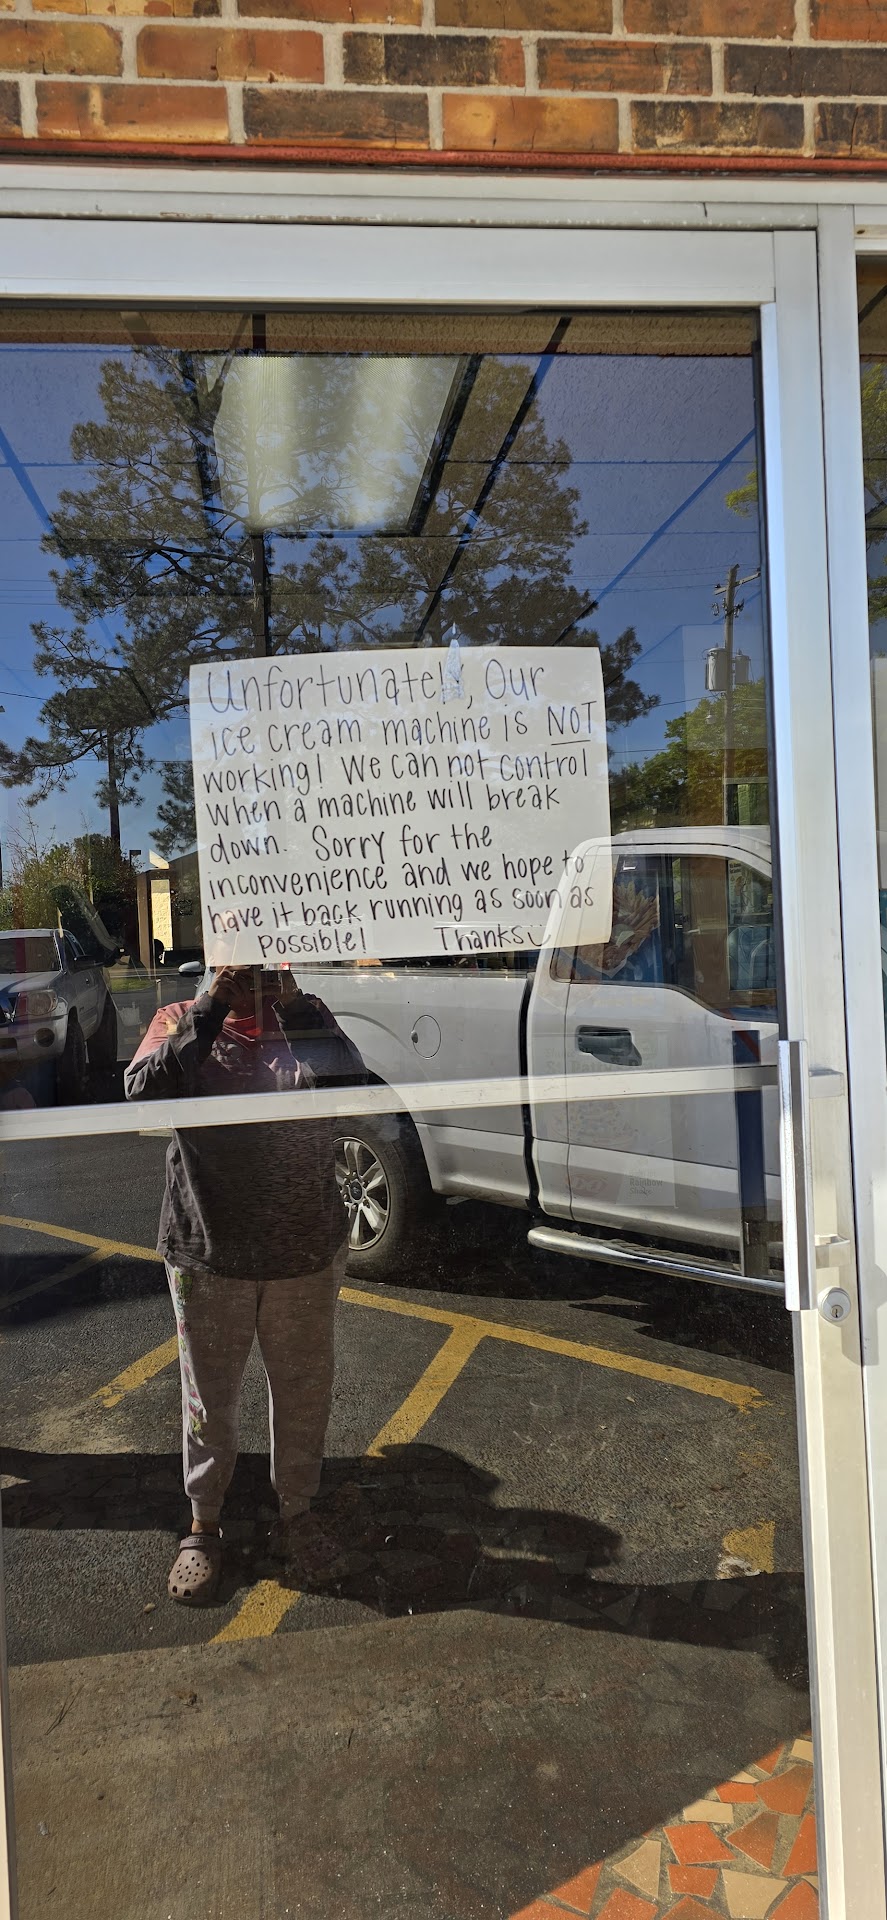 Unfortunately, Our
ice cream machine is NOT
working! We can not control
when a machine will break
down. Sorry for the
inconvenience and we hope to
have it back running as soon as
possible! Thanks
Rainbow
Shake